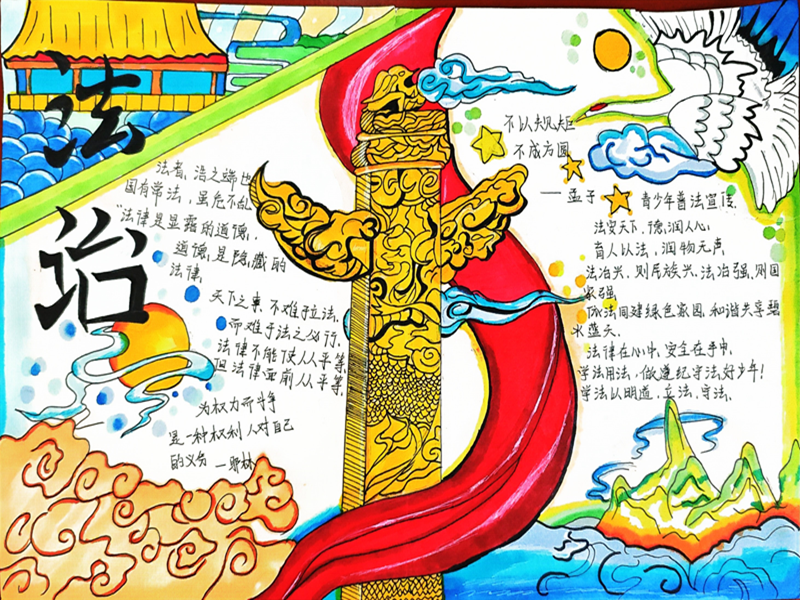 法治
法者，治之端也
国有常法，虽危不乱
"法律是显露的道德，
道德，是隐藏的
法律，
天下之事，不难于立法，
而难于法之必行，
法律不能使人人平等，
但法律面前人人平等，
为权力而斗争
是一种权利人对自己
的义务 —耶林
不以规矩
不成方圆
—— 孟子
青少年普法宣传
法安天下，德润人心，
育人以法，润物无声
法治兴，则民族兴，法治强，则国
家强
依法同建绿色家园，和谐共享碧
水蓝天，
法律在心中，安全在手中，
学法用法，做遵纪守法好少年！
学法以明道，立法，守法，